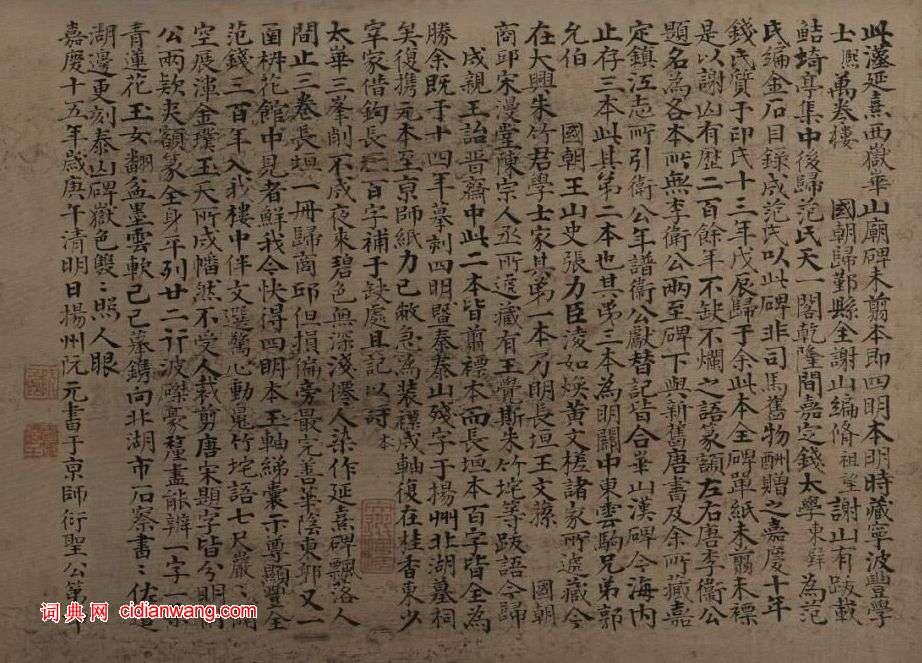 此漢延熹西嶽華山廟碑未翦本即四明本明時藏寧波豐學
士熙萬卷樓 國朝歸鄞縣全謝山編脩祖望謝山有跋載
鮚埼亭集中後歸范氏天一閣乾隆間嘉定錢太學東壁為范
氏編金石目錄成范氏以此碑非司馬舊物酬贈之嘉慶十年
錢氏質于印氏十三年戊辰歸于余此本全碑單紙未翦未褾
是以謝山有歷二百餘年不缺不爛之語篆額左右唐李衛公
題名為各本所無李衛公兩至碑下與新舊唐書及余所藏嘉
定鎮江志所引衛公年譜衛公獻替記皆合華山漢碑今海內
止存三本此其第二本也其第三本為明關中東雲駒兄弟郭
允伯 國朝王山史張力臣淩如煥黃文槎諸家所遞藏今
在大興朱竹君學士家其第一本乃明長垣王文蓀 國朝
商邱宋漫堂陳宗人丞所遞藏有王覺斯朱竹垞等跋語今歸
成親王詒晉齋中此二本皆翦褾本而長垣本百字皆全為
勝余既于十四年摹刻四明暨泰山殘字于揚州北湖墓祠
矣復攜元本至京師紙力已敝急為裝褾成軸復在桂香東少
宰家借鉤長垣本百字補于缺處且記以詩
太華三峯削不成夜來碧色無深淺僊人染作延熹碑飄落人
間止三卷長垣一冊歸商邱但損偏旁最完善華陰東郭又一
函椒花館中見者鮮我今快得四明本玉軸綈囊示尊顯豐全
范錢三百年入我樓中伴文選驚心動魄竹垞語七尺嚴嚴
空展渾金璞玉天所成幡然不受人裁剪唐宋題字皆分明
公兩欵夾額篆全身平列廿二行波磔豪釐盡能辨一字一
青蓮花玉女翻盆墨雲軟己巳摹鐫向北湖市石察書書佐
湖邊更刻泰山碑嶽色雙雙照人眼
嘉慶十五年歲庚午清明日揚州阮元書于京師衍聖公第
词典网 cidianwang.com